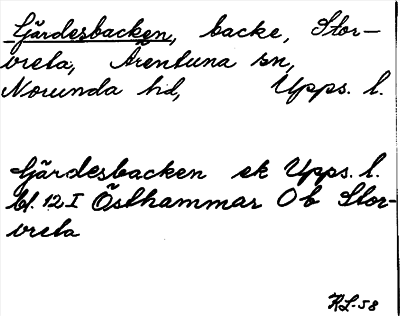 Gärdesbacken, backe, Stor-
vreta, Ärentuna sn,
Norunda hd, Upps. l.
Gärdesbacken ek Upps. l.
bl. 12 I Östhammar Ob Stor-
vreta
KL-58